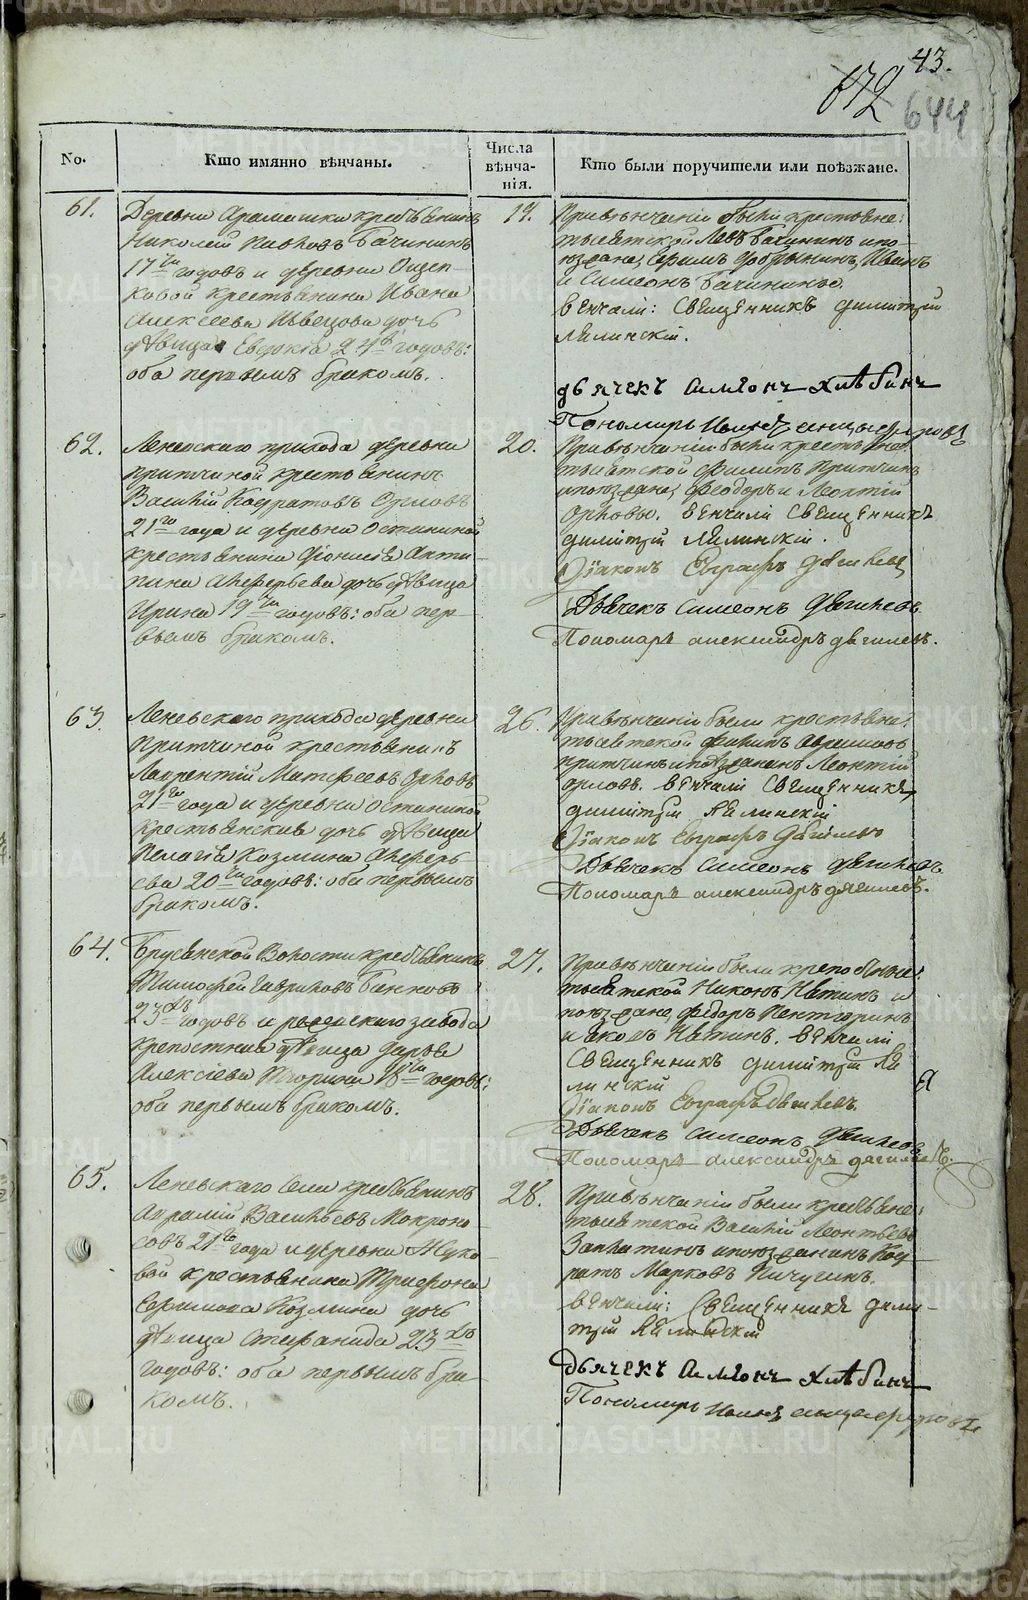 43.
672
644
No.
Кто имянно вѣнчаны.
Числа
вѣнча-
нія.
Кто были поручители или поѣзжане.
61.
Деревни Арамашки крестьянинъ
Николай Павловъ Бачининъ
17ти годовъ и деревни Ощеп-
ковой крестьянина Ивана
Алексѣева Швецова дочь
дѣвица Евдокіа 24 годовъ:
оба первымъ бракомъ.
19.
При вѣнчаніи были крестьяне:
тысяцкой Левъ Бачининъ и по-
ѣзжане, Иванъ
и Симеонъ Бачинины.
вѣнчали: Священникъ Димитрій
Лялинскій.
дьячекъ Симеонъ Хлѣбинъ
Пономарь
62.
Леневскаго прихода деревни
Притчиной крестьянинъ
Василій Кодратовъ
21го года и деревни Останиной
крестьянина Діонисія Анти-
пина Алферьева дочь дѣвица
Ирина 19ти годовъ: оба пер-
вымъ бракомъ.
20.
При вѣнчаніи были крестьяне:
тысяцкой Филипъ Притчинъ
и поѣзжане, Феодоръ и Леонтій
Орловы. вѣнчали Священникъ
Димитрій Лялинскій.
Діаконъ Евграфъ Дягилевъ
Дьячекъ Симеонъ Дягилевъ
Пономарь Александръ Дягилевъ.
63.
Леневскаго прихода деревни
Притчиной крестьянинъ
Лаврентій Матфеевъ Орловъ
21го года и деревни Останиной
крестьянская дочь дѣвица
Пелагія Козмина Алферь-
ева 20ти годовъ: оба первымъ
бракомъ.
26.
При вѣнчаніи были крестьяне:
тысяцкой Филипъ Абрамовъ
Притчинъ и поѣзжанинъ Леонтій
Орловъ. вѣнчали Священникъ
Димитрій Лялинскій
Діаконъ Евграфъ Дягилевъ
Дьячекъ Симеонъ Дягилевъ
Пономарь Александръ Дягилевъ.
64.
Брусянской Волости крестьянинъ
Тимофей Гавриловъ Банновъ
23хъ годовъ и завода
крепостная дѣвица Дарья
Алексіева 18ти годовъ:
оба первымъ бракомъ.
27.
При вѣнчаніи были крепостные:
тысяцкой Никонъ и
поѣзжане, Федоръ
и вѣнчали
Священникъ Димитрій Ля
линскій
Я
Діаконъ Евграфъ Дягилевъ.
Дьячекъ Симеонъ Дягилевъ
Пономарь Александръ Дягилевъ.
65.
Леневскаго Села крестьянинъ
Аврамій Васильевъ Мокроно-
совъ 21го года и деревни Жуко-
вой крестьянина Трифона
Козмина дочь
дѣвица Стефанида 23хъ
годовъ: оба первымъ бра-
комъ.
28.
При вѣнчаніи были крестьяне:
тысяцкой Василій Леонтьевъ
Заплатинъ и поѣзжанинъ Код-
ратъ Марковъ Пичугинъ.
вѣнчали: Священникъ Дими-
трій Лялинскій
дьячекъ Симеонъ Хлѣбинъ
Пономарь